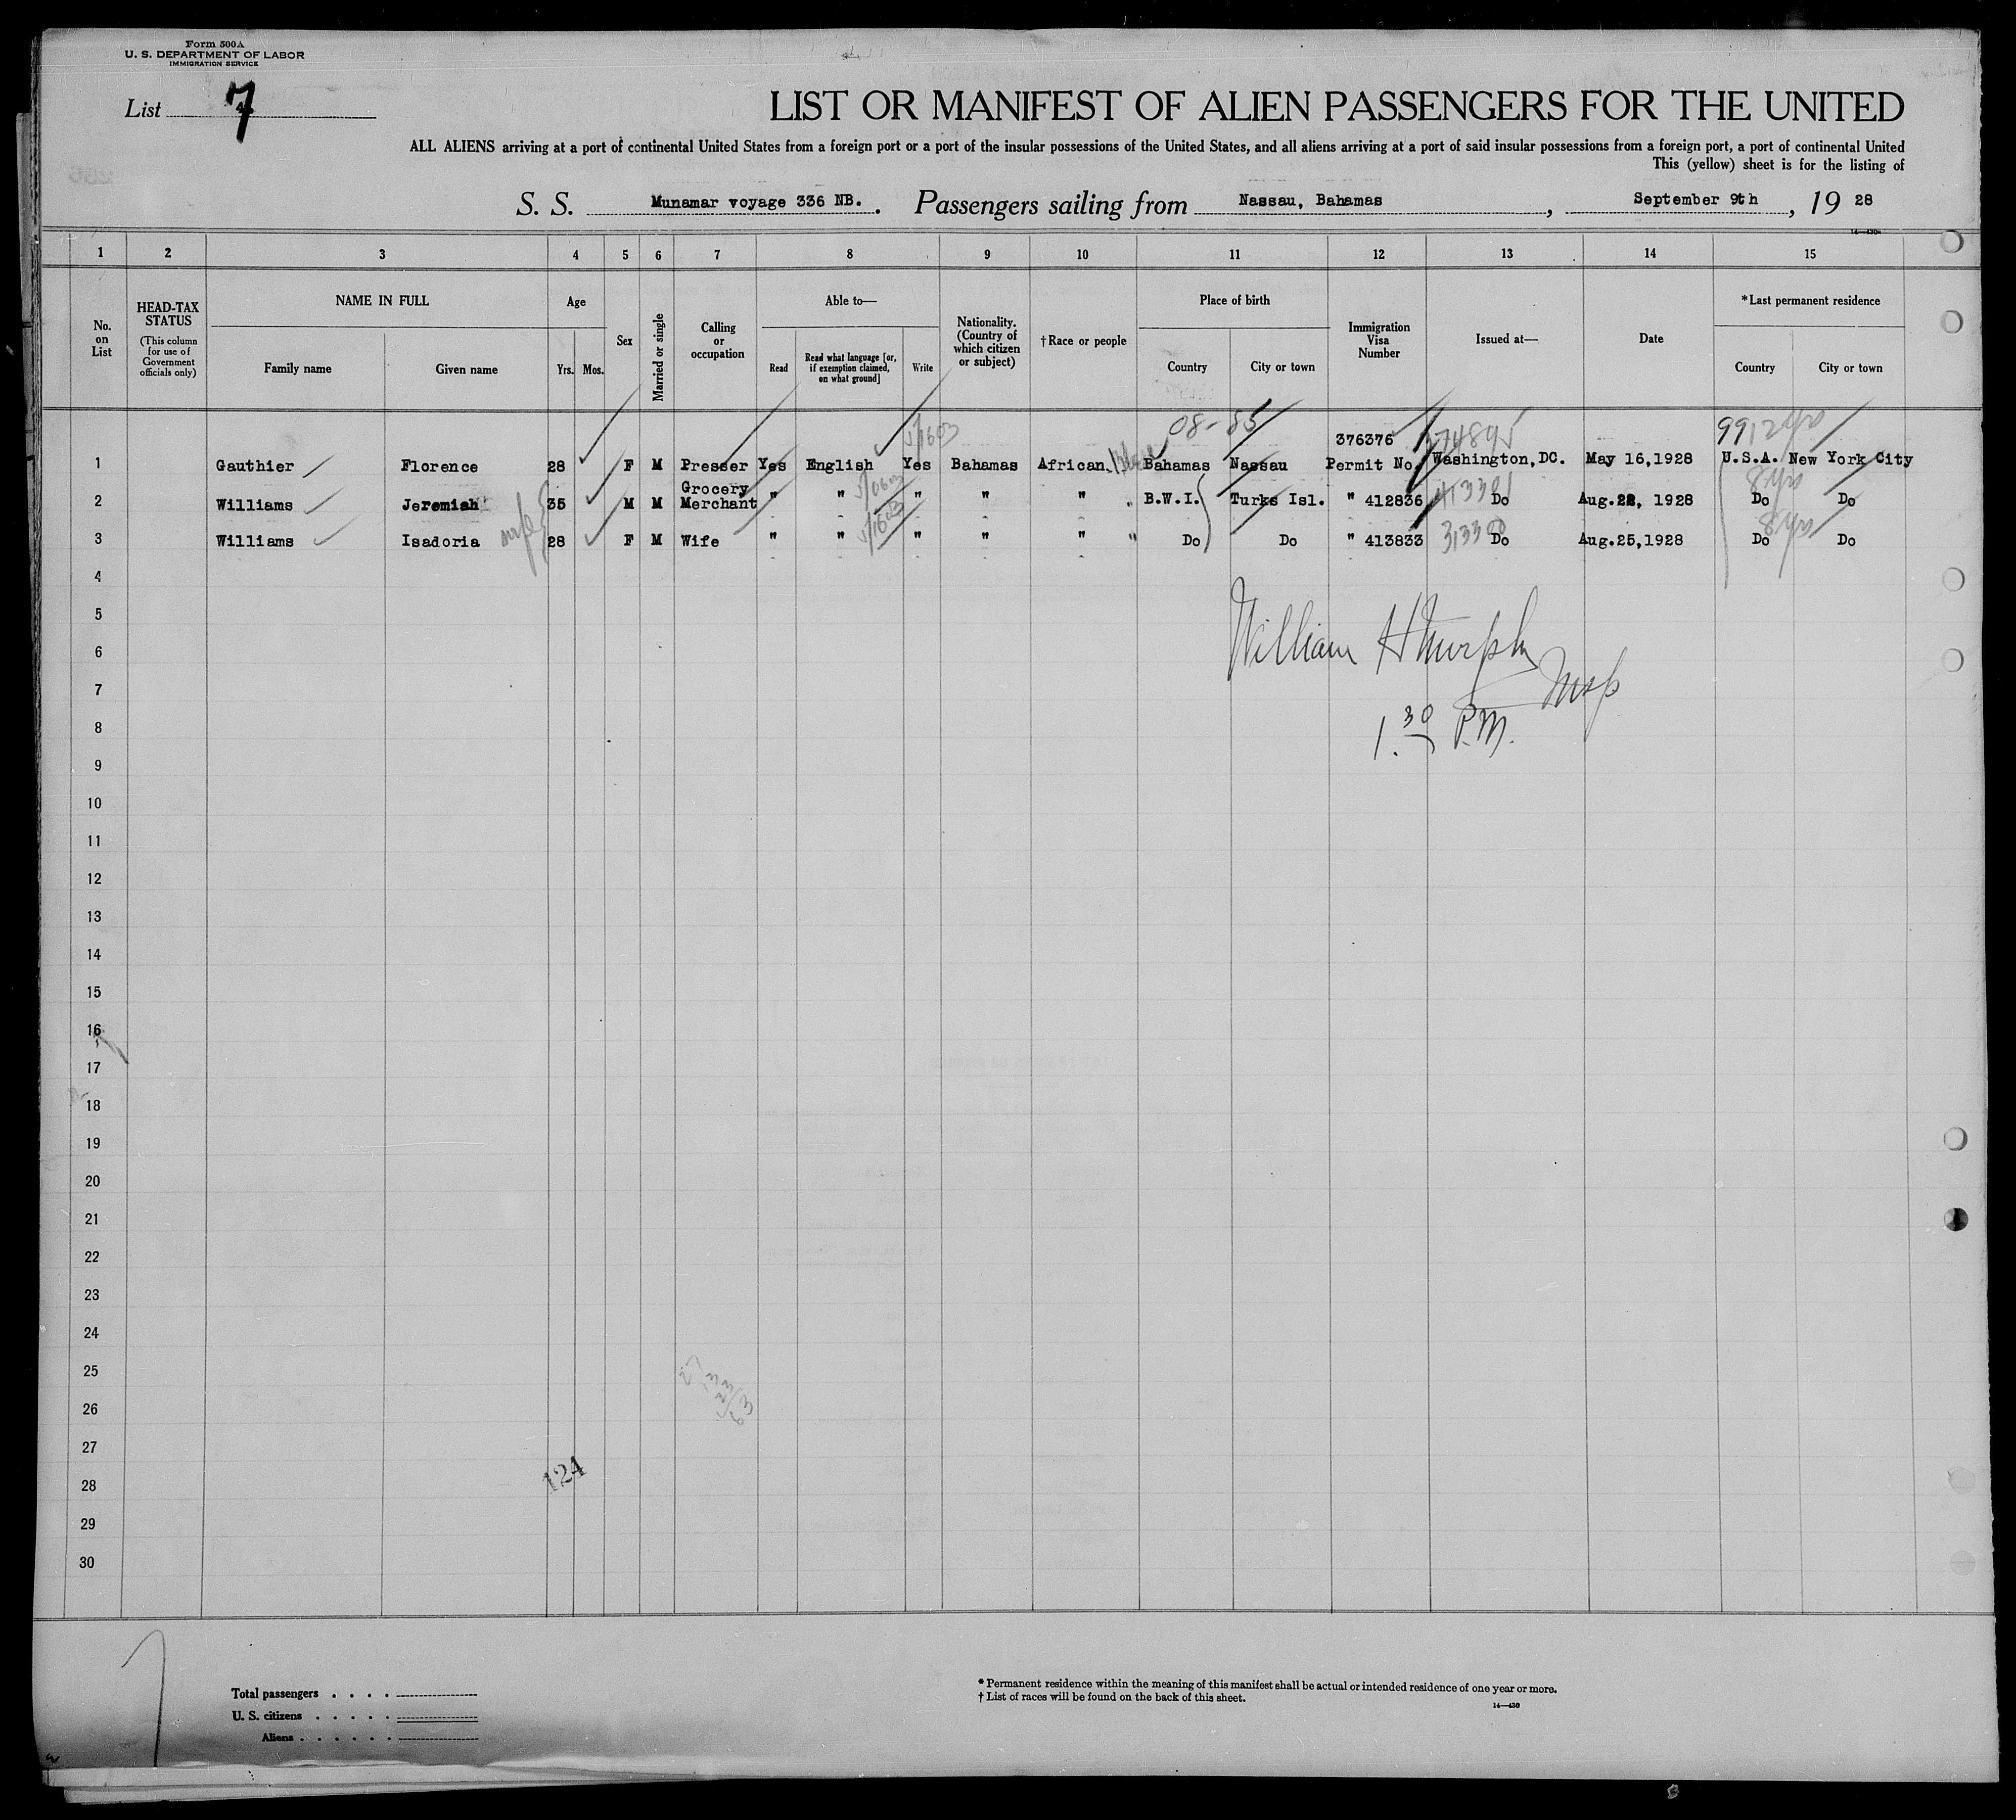 Form 500A
U. S. DEPARTMENT OF LABOR
IMMIGRATION SERVICE
List 7
LIST OR MANIFEST OF ALIEN PASSENGERS FOR THE UNITED
ALL ALIENS arriving at a port of continental United States from a foreign port or a port of the insular possessions of the United States, and all aliens arriving at a port of said insular possessions from a foreign port, a port of continental United
This (yellow) sheet is for the listing of
S. S. Munamar voyage 336 NB. Passengers sailing from Nassau, Bahamas, September 9th, 19 28
1 2 3 4 5 6 7 8 9 10 11 12 13 14 15
No. on List
HEAD-TAX STATUS
(This column for use of Government officials only)
NAME IN FULL
Family name Given name
Age
Yrs. Mos.
Sex
Married or single
Calling or occupation
Able to—
Read
Read what language [or, if exemption claimed, on what ground]
Write
Nationality. (Country of which citizen or subject)
†Race or people
Place of birth
Country City or town
Immigration Visa Number
Issued at—
Date
*Last permanent residence
Country City or town
08-85
1 Gauthier Florence 28 F M Presser Yes English Yes Bahamas African Bahamas Nassau 376376 Permit No. Washington,DC. May 16,1928 U.S.A. New York City
2 Williams Jeremiah 35 M M Grocery Merchant " " " " " B.W.I. Turks Isl. " 412836 Do Aug.22, 1928 Do Do
3 Williams Isadoria wife 28 F M Wife " " " " " Do Do " 413833 Do Aug.25,1928 Do Do
4
5
6
William H Murphy
Insp
7
1.30 P.M.
8
9
10
11
12
13
14
15
16
17
18
19
20
21
22
23
24
25
26
27
124
28
29
30
Total passengers . . . .
U. S. citizens . . . . .
Aliens . . . . . .
* Permanent residence within the meaning of this manifest shall be actual or intended residence of one year or more.
† List of races will be found on the back of this sheet.
14—430